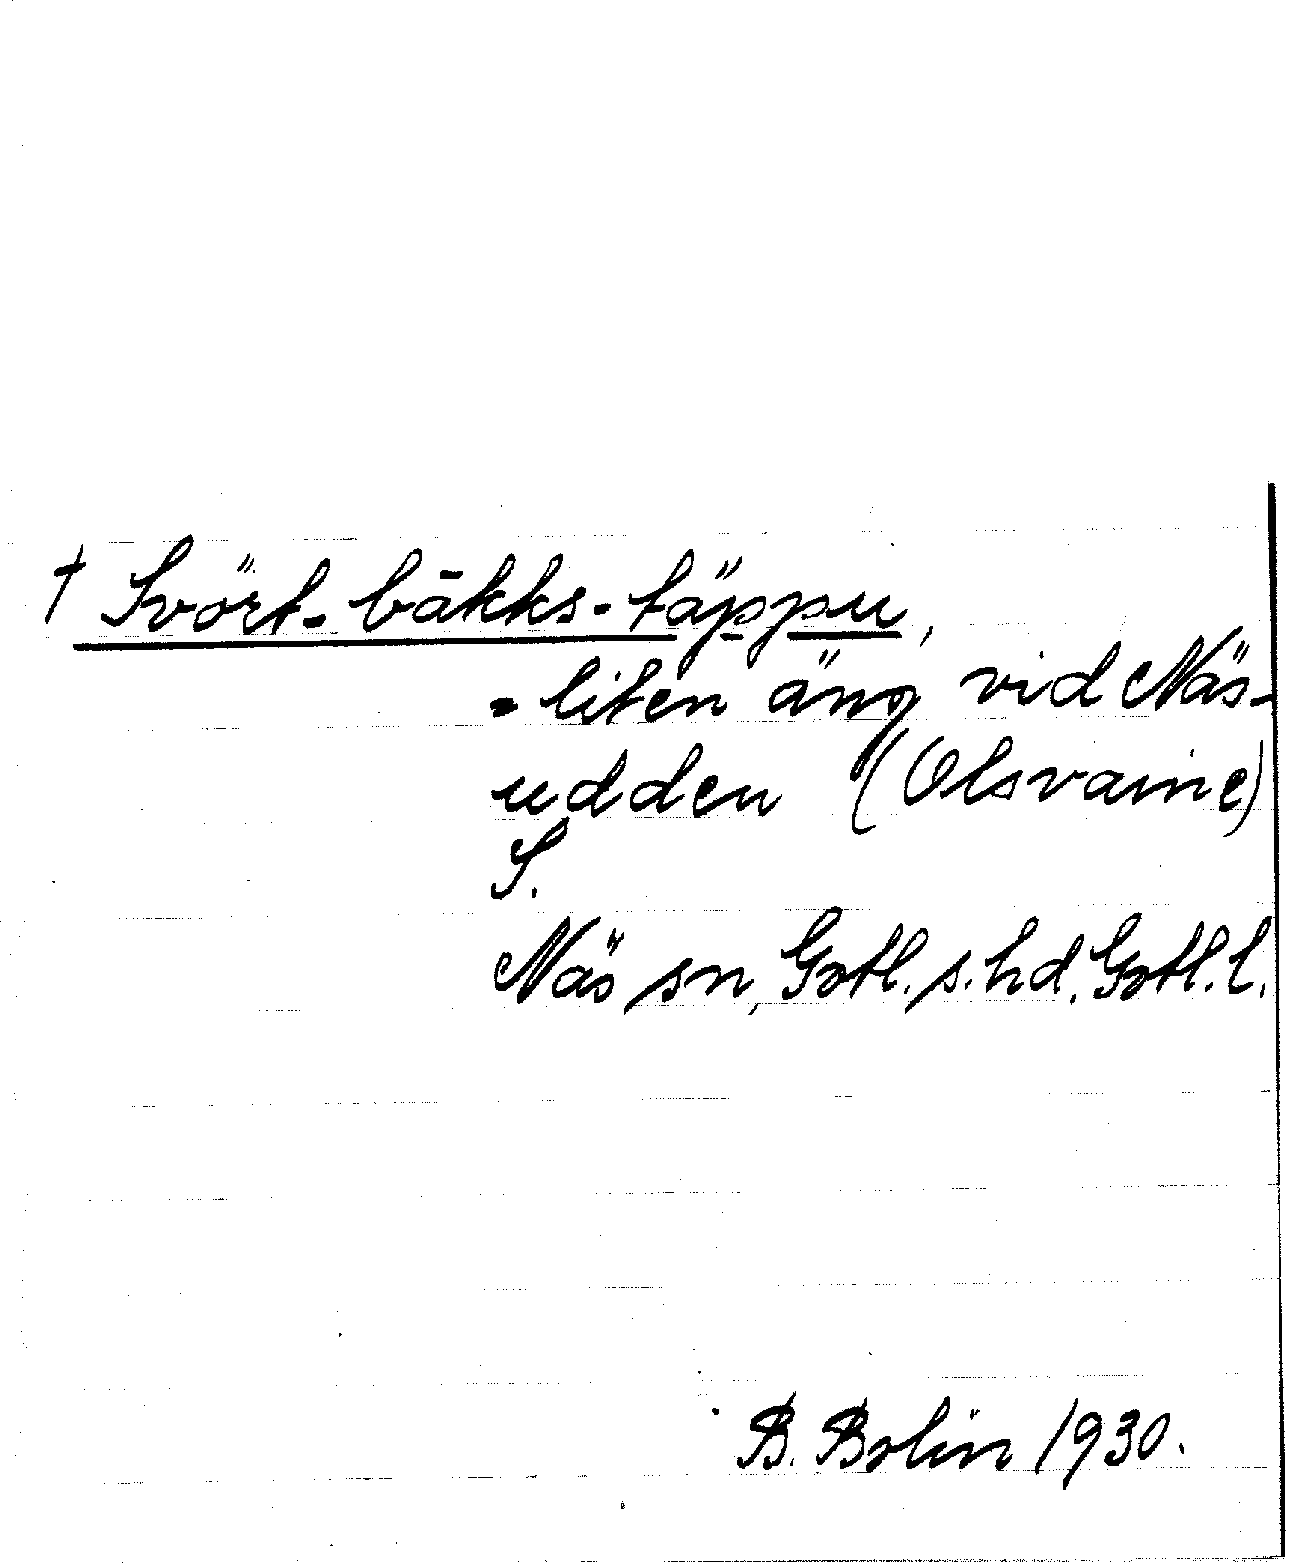 † Svört-bäkks-täppu,
= liten äng vid Näs-
udden (Olsvaine)
S.
Näs sn, Gotl. s. hd, Gotl. l.
B. Bolin 1930.